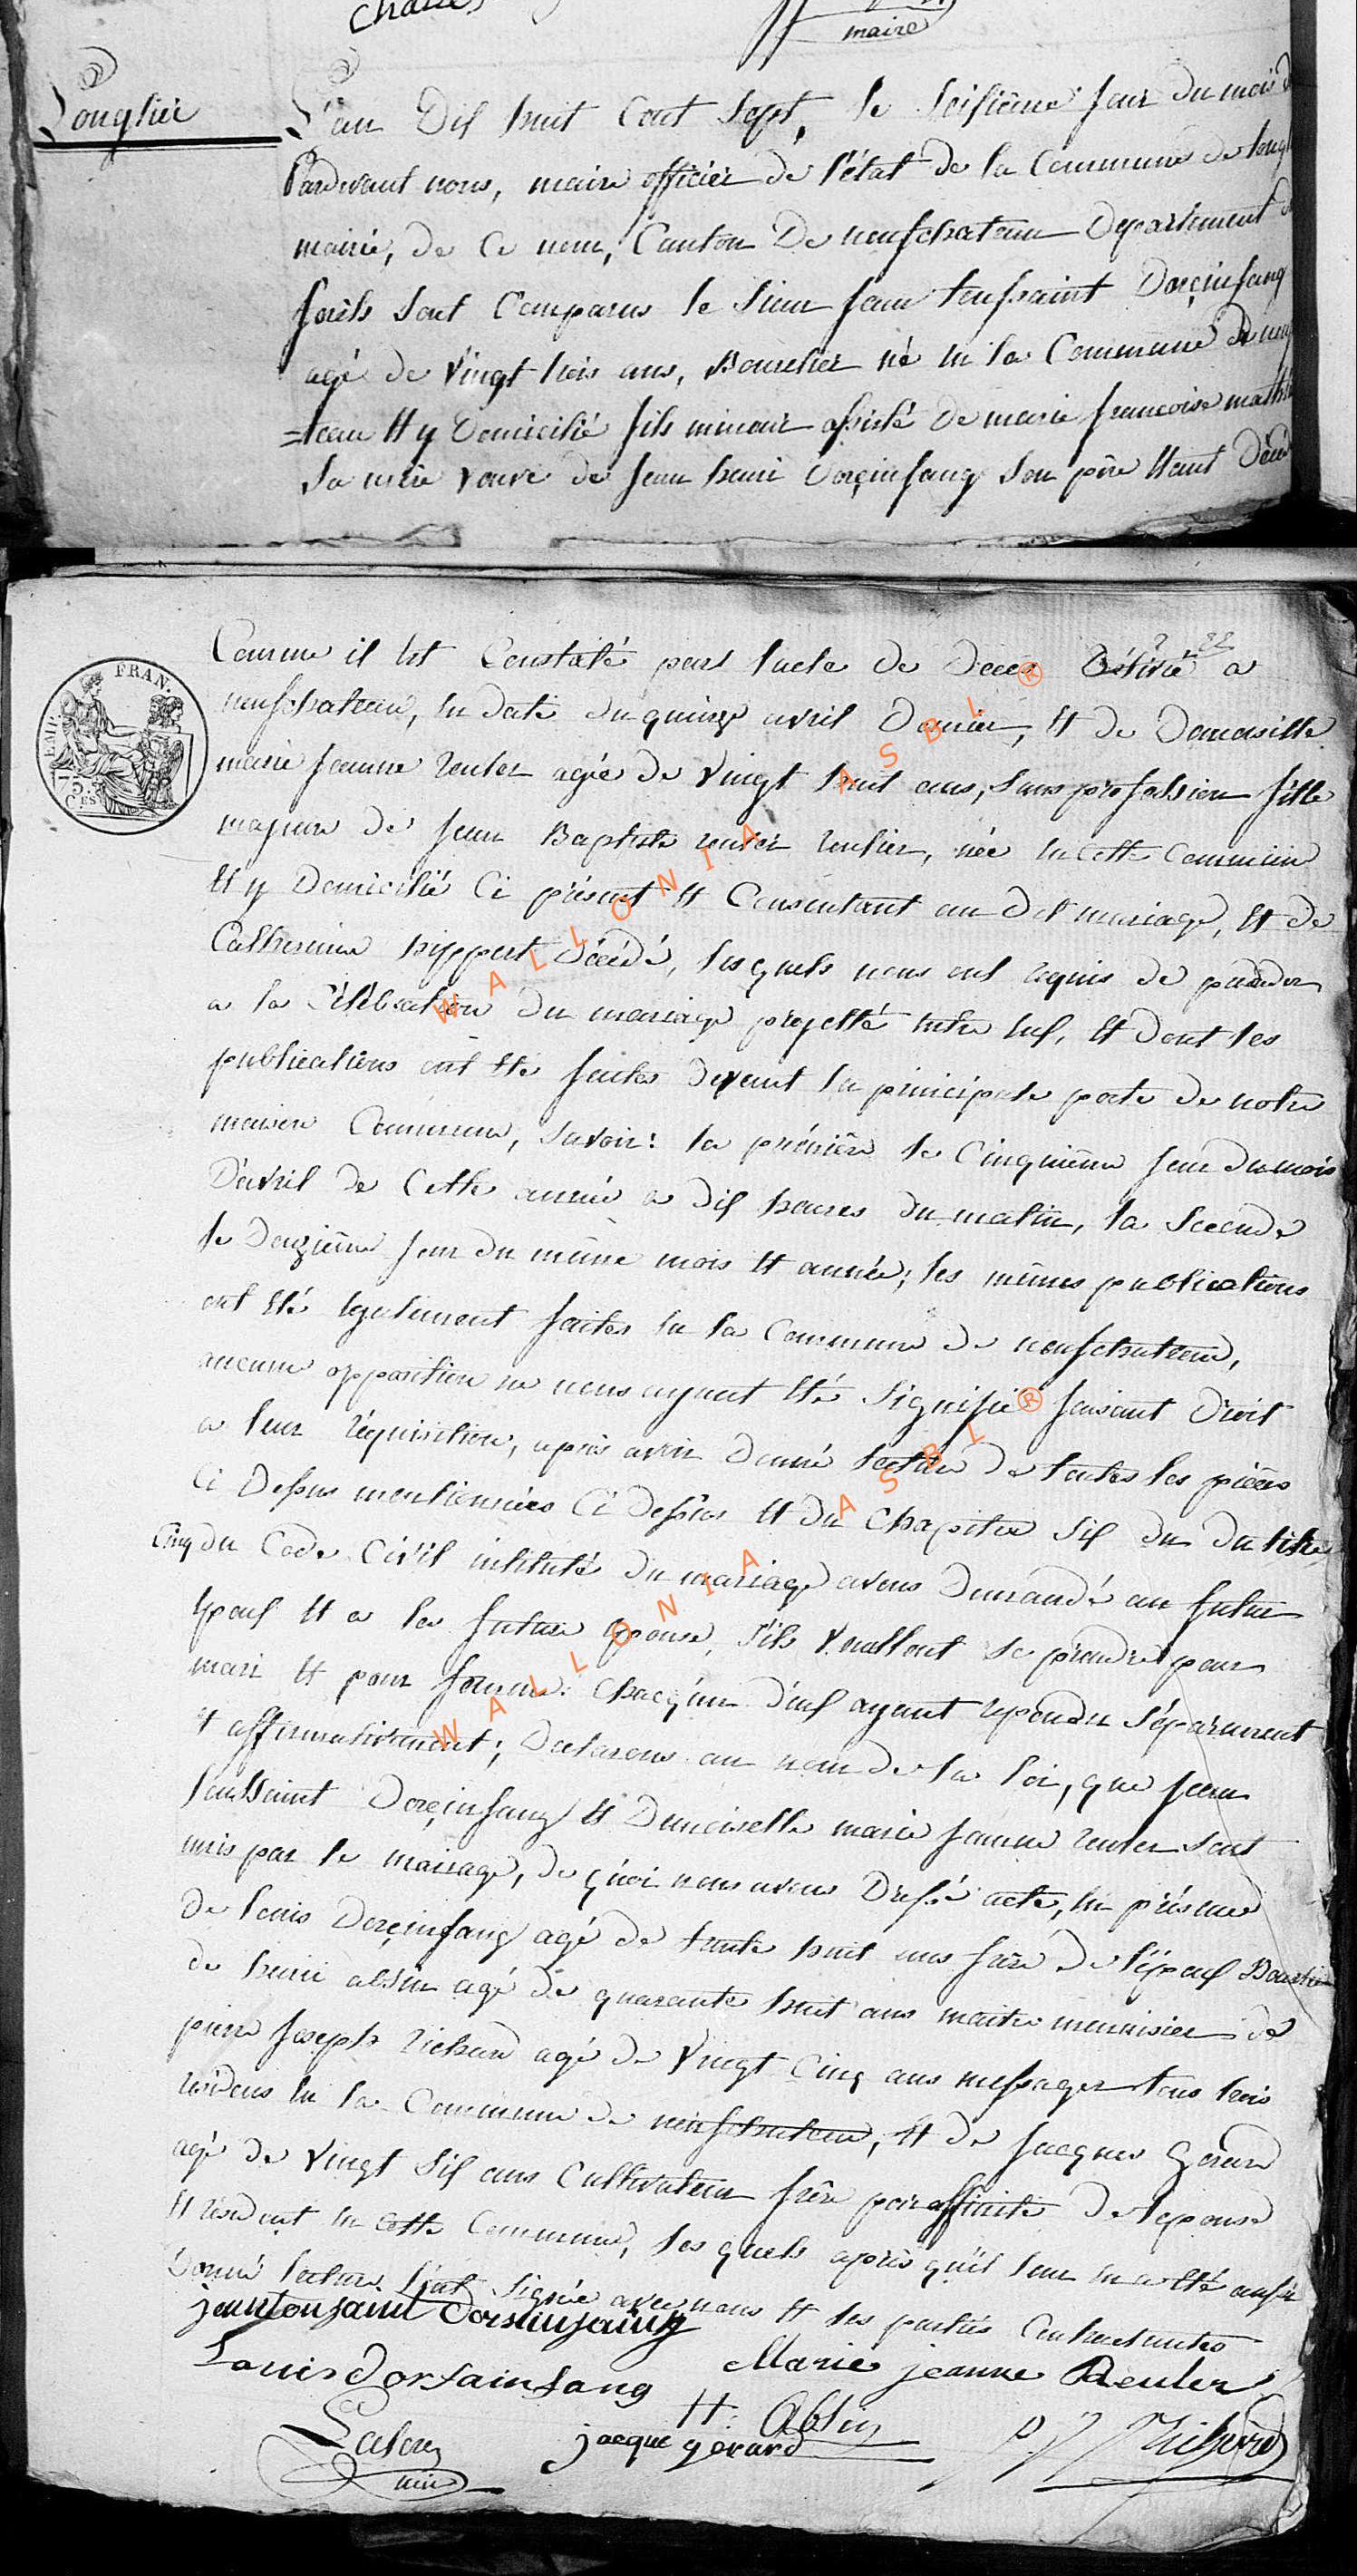 maire
Longlier
L'an Dix huit Cent Sept, le Seisième jour du mois
Pardevant nous, maire officier de l'état de la Commune de
mairie, de Ce nom, Canton De neufchateau Departement
forêts sont Comparus le Sieur jean toussaint Dorçinfang
agé de Vingt trois ans, Bourelier né en la Commune de
=teau et y Domicilié fils mineur assisté De marie francoise
Sa mère veuve de jean henri Dorçinfang Son père étant
Comme il est Constaté par l'acte de deces délivré a
neufchateau, en date du quinze avril Dernier, et de Demoiselle
marie jeanne reuter agée de Vingt huit ans, sans profession fille
majeure de jean Baptiste reuter rentier, née en Cette Commune
et y Domicilié Ci présent et Consentant au dit mariage, et de
Catherine hippert décédé, lesquels nous ont requis de procéder
a la Célébration du mariage projetté entre eux, et dont les
publications ont été faites devant la principale porte de notre
maison Commune, Savoir: la prémière le Cinquième jour du mois
D'avril de Cette année a dix heures du matin, la Seconde
le Douzième jour du même mois et année; les mêmes publications
ont été égalément faites en la Commune de neufchateau,
aucune opposition ne nous ayant été Signifié faisant Droit
a leur réquisition, après avoir Donné lecture de toutes les pièces
Ci Dessus mentionnées Ci dessus et du Chapitre Six du du titre
Cinq du Code Civil intitulé du mariage avons Demandé au futur
époux et a la future épouse, s'ils Veullent se prendre pour
mari et pour femme: Chacqun d'eux ayant repondu Séparement
et affirmativement; Declarons au nom de la loi, que jean
toussaint Dorçinfang et Demoiselle marie jeanne reuter sont
unis par le mariage, de quoi nous avons Dressé acte, en présence
De louis Dorçinfang agé de trente huit ans frère de l'époux
de henri absin agé de quarante huit ans maitre menuisier de
pierre joseph richard agé de Vingt Cinq ans messager tous trois
residens en la Commune de neufchateau, et de jacques gerard
agé de Vingt Six ans Cultivateur frère par affinité de l'épouse
et résident en Cette Commune, les quels après qu'il leur en a été aussi
Donné lecture l'ont Signée avec nous et les parties Contractantes
jean tousaint Dorsinfaing
Louis dorsainfang
Marie jeanne Reuter
H: Absin
jacque gerard
P J Richard
maire
FRAN.
EMP.
75
CES
WALLONIA ASBL ®
WALLONIA ASBL ®